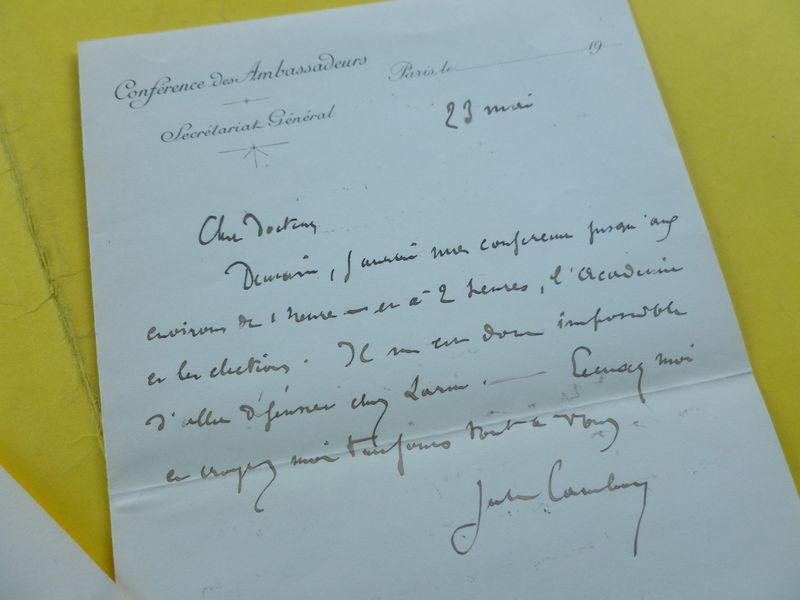 Conférence des Ambassadeurs
Secrétariat Général
Paris, le 19
23 mai
Cher Docteur
Demain, j'aurai une conférence jusqu'aux
environs de 1 heure – et à 2 heures, l'Académie
et les élections. Il m'est donc impossible
d'aller déjeuner chez Larue. — Excusez moi
et croyez moi toujours tout à vous
Jules Cambon